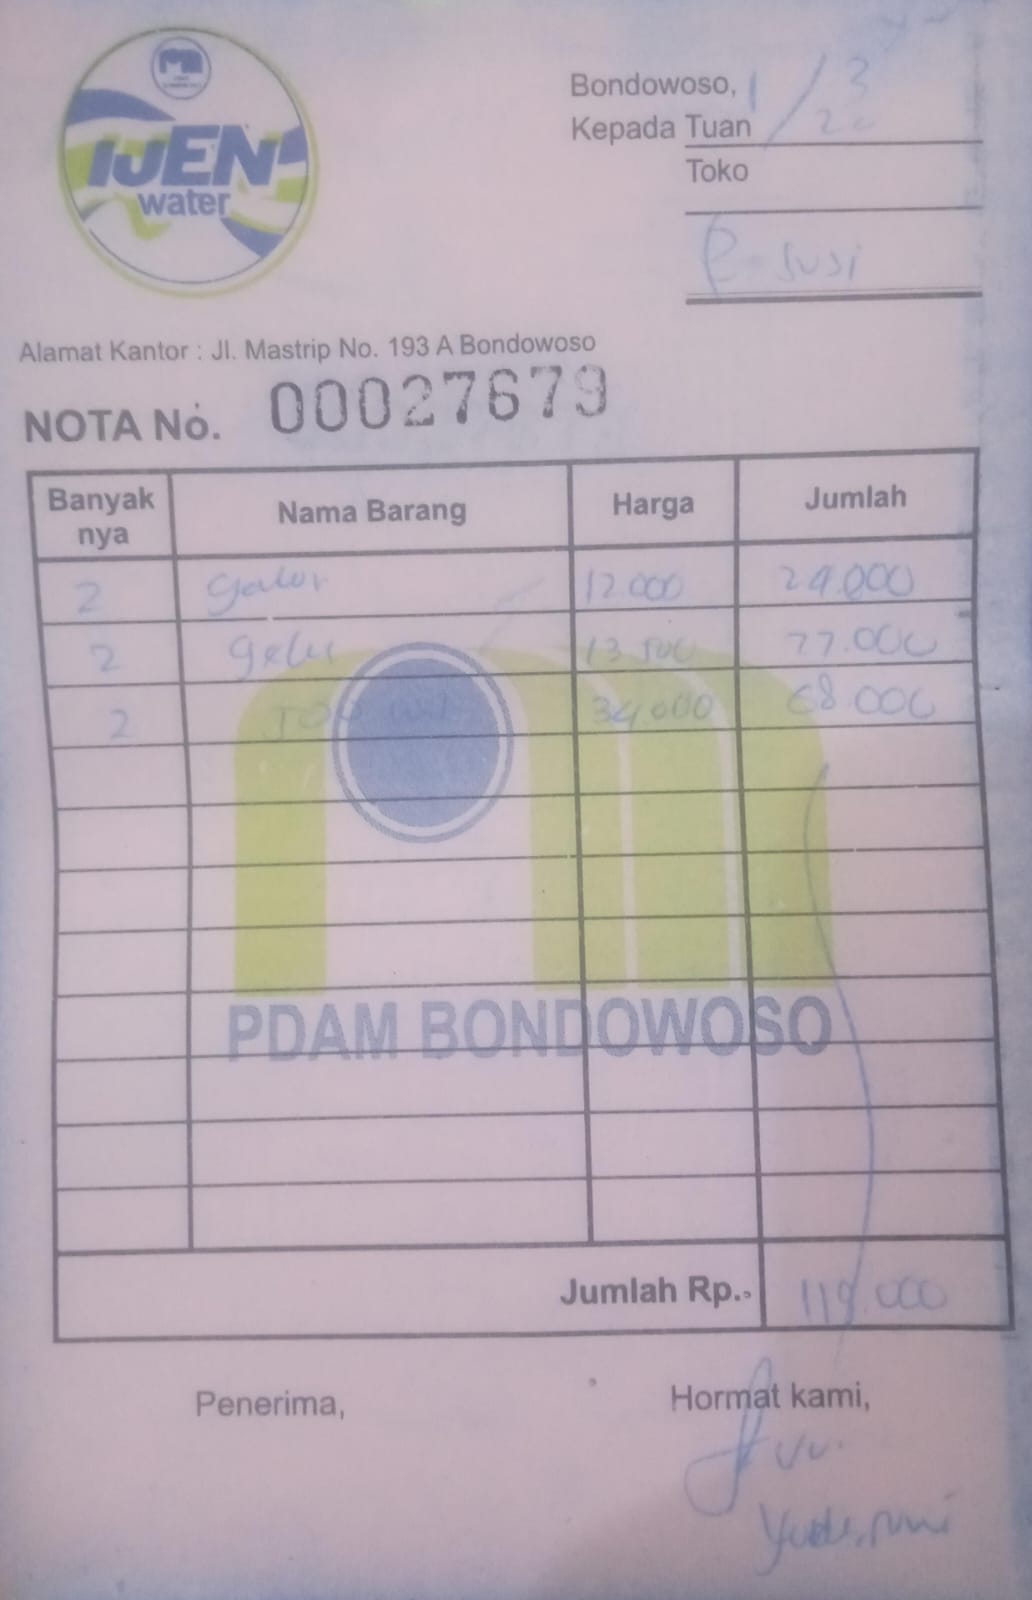 IJEN
water
Bondowoso, 1/3
Kepada Tuan
Toko
P-Susi
Alamat Kantor : Jl. Mastrip No. 193 A Bondowoso
NOTA No. 00027679
Banyak nya Nama Barang Harga Jumlah
2 galon 12.000 24.000
2 gelu 13.500 27.000
2 34.000 68.000
PDAM BONDOWOSO
Jumlah Rp. 119.000
Penerima, Hormat kami,